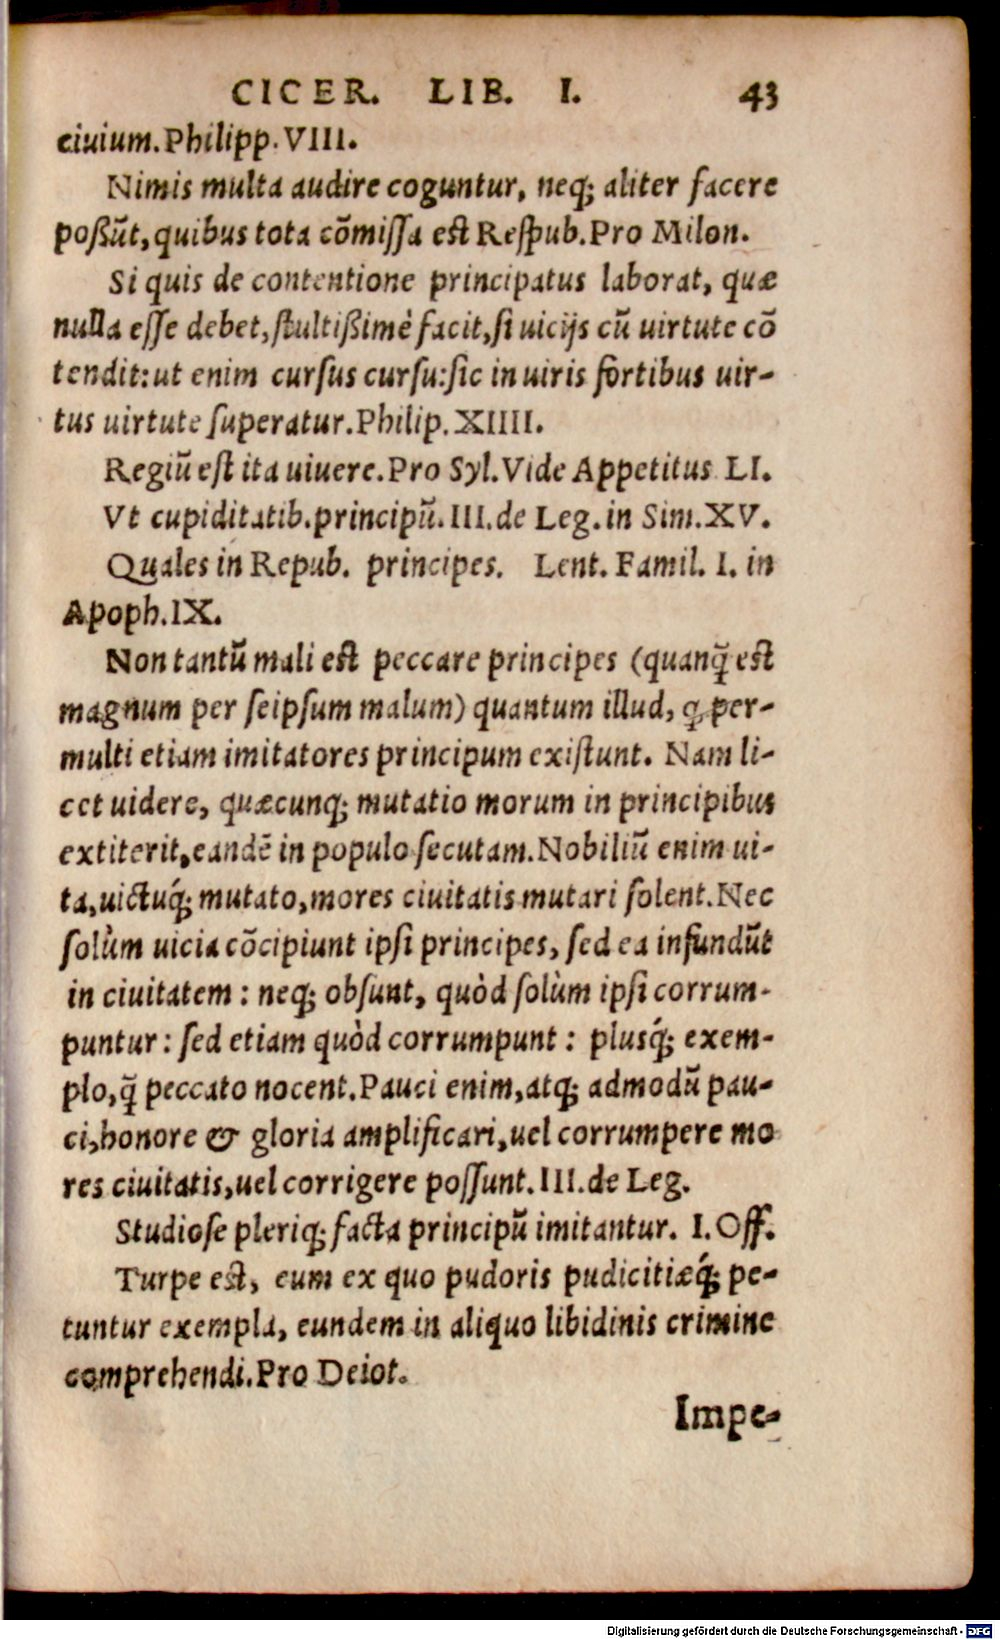 CICER. LIB. I. 43
ciuium. Philipp. VIII.
Nimis multa audire coguntur, neq; aliter facere
poßūt, quibus tota cōmissa est Respub. Pro Milon.
Si quis de contentione principatus laborat, quæ
nulla esse debet, stultißimè facit, si uicijs cū uirtute cō
tendit: ut enim cursus cursu: sic in uiris fortibus uir-
tus uirtute superatur. Philip. XIIII.
Regiū est ita uiuere. Pro Syl. Vide Appetitus LI.
Vt cupiditatib. principū. III. de Leg. in Sim. XV.
Quales in Repub. principes. Lent. Famil. I. in
Apoph. IX.
Non tantū mali est peccare principes (quanq̃ est
magnum per seipsum malum) quantum illud, ꝙ per-
multi etiam imitatores principum existunt. Nam li-
cet uidere, quæcunq; mutatio morum in principibus
extiterit, eandē in populo secutam. Nobiliū enim ui-
ta, uictuq́; mutato, mores ciuitatis mutari solent. Nec
solùm uicia cōcipiunt ipsi principes, sed ea infundūt
in ciuitatem : neq; obsunt, quòd solùm ipsi corrum-
puntur : sed etiam quòd corrumpunt : plusq́; exem-
plo, q̃ peccato nocent. Pauci enim, atq; admodū pau-
ci, honore & gloria amplificari, uel corrumpere mo
res ciuitatis, uel corrigere possunt. III. de Leg.
Studiose pleriq; facta principū imitantur. I. Off.
Turpe est, eum ex quo pudoris pudicitiæq́; pe-
tuntur exempla, eundem in aliquo libidinis crimine
comprehendi. Pro Deiot.
Impe-
Digitalisierung gefördert durch die Deutsche Forschungsgemeinschaft - DFG